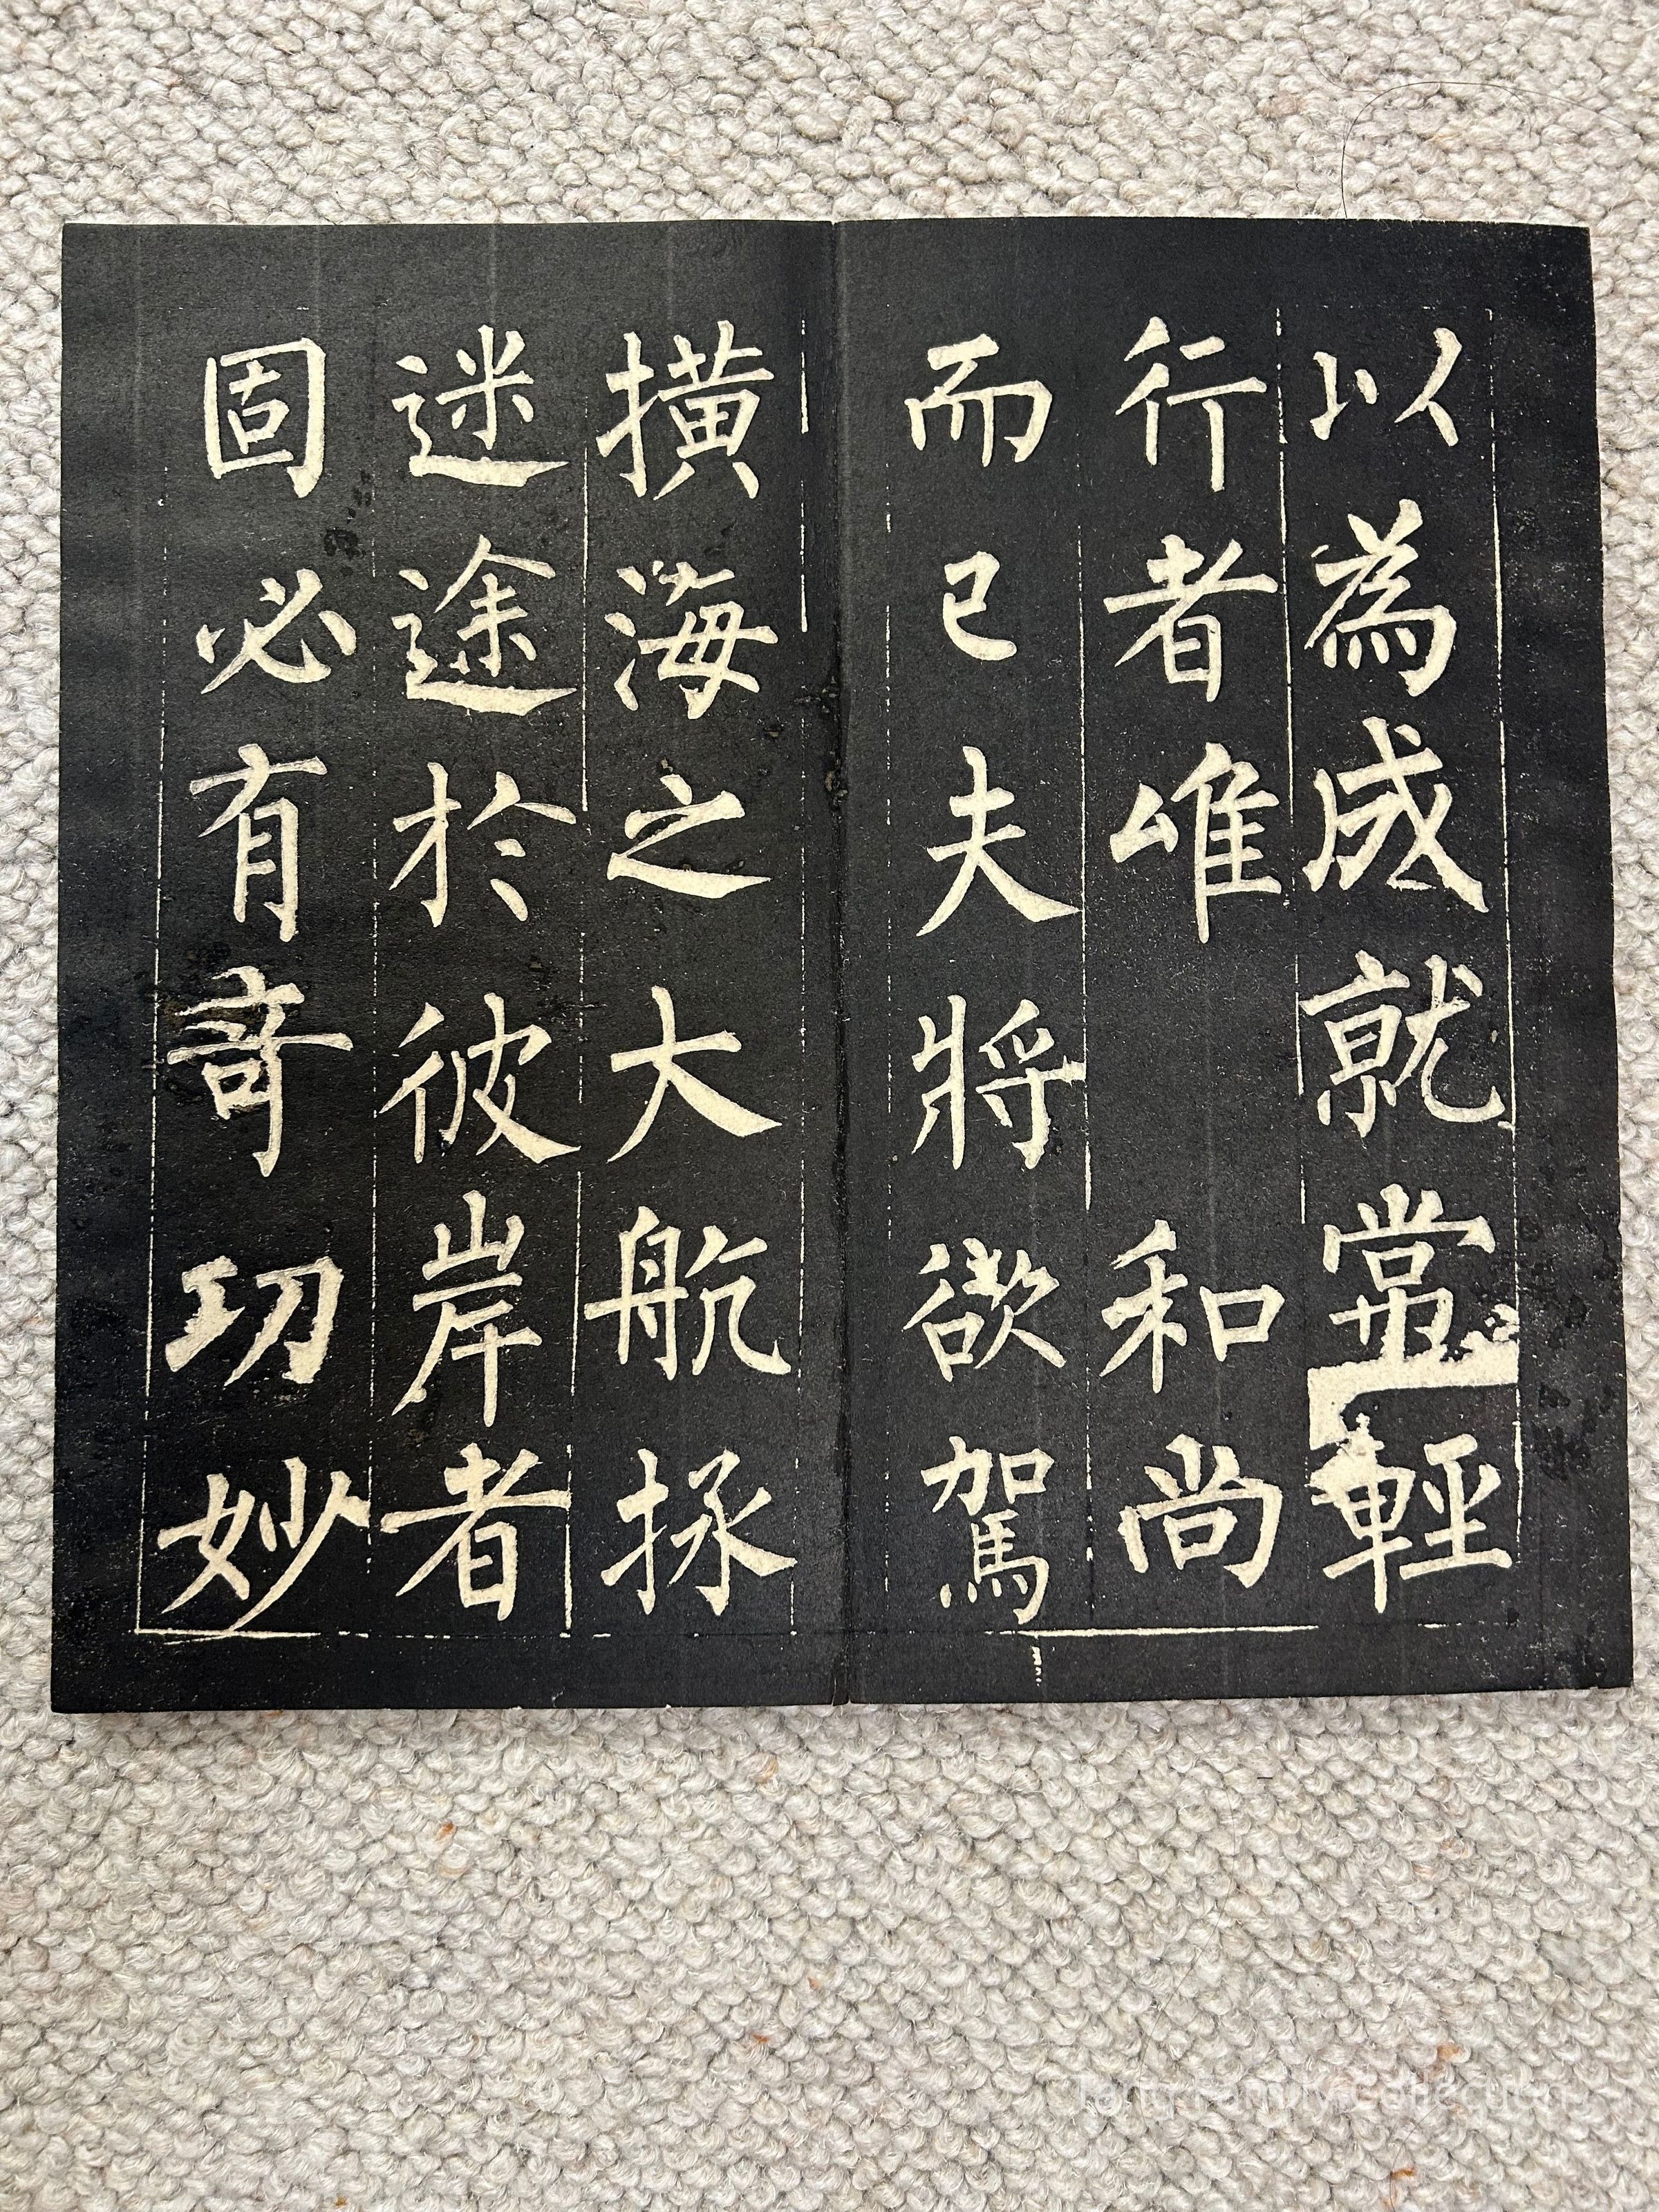 以為成就常輕
行者唯 和尚
而已夫將欲駕
撗海之大航拯
迷途於彼岸者
固必有奇功妙
Tang Family Collection